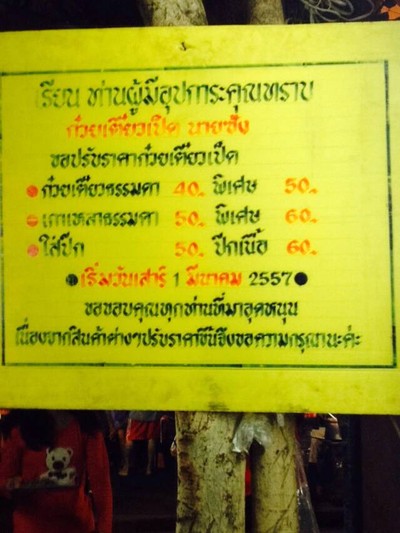 เรียน ท่านผู้มีอุปการะคุณทราบ
ก๋วยเตี๋ยวเป็ด นายซ้ง
ขอปรับราคาก๋วยเตี๋ยวเป็ด
ก๋วยเตี๋ยวธรรมดา 40.- พิเศษ 50.-
เกาเหลาธรรมดา 50.- พิเศษ 60.-
ใส่ปีก 50.- ปีกเนื้อ 60.-
เริ่มวันเสาร์ 1 มีนาคม 2557
ขอขอบคุณทุกท่านที่มาอุดหนุน
เนื่องจากสินค้าต่างๆปรับราคาขึ้นจึงขอความกรุณานะค่ะ